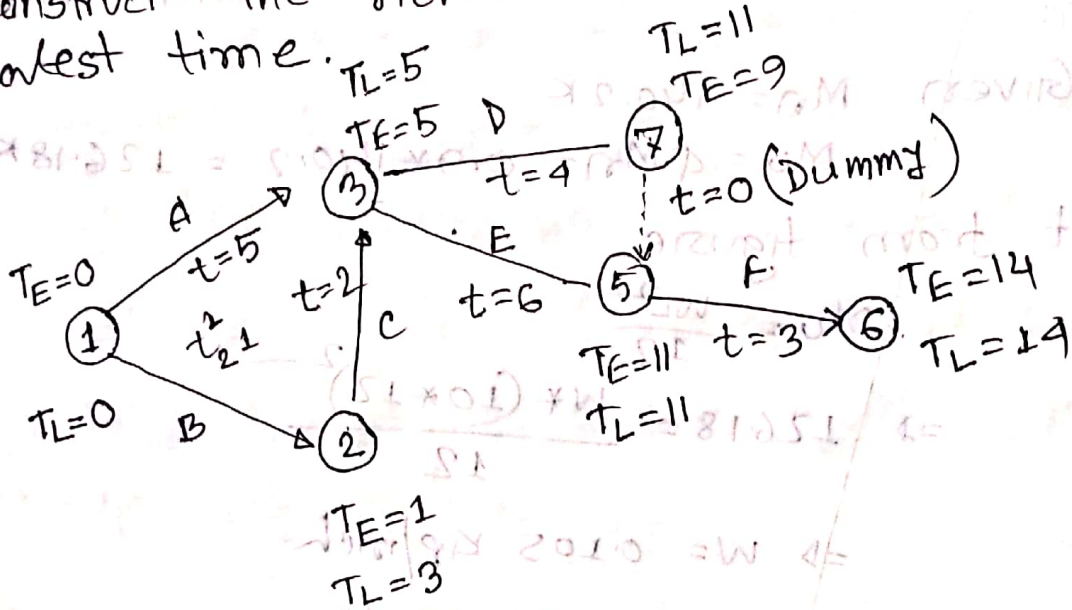 the
atest time.
TL=5
TE=5
D
t=4
TL=11
TE=9
7
t=0 (Dummy)
3
A
t=5
TE=0
1
TL=0
t=2
C
E
t=6
5
F.
t=3
6
TE=14
TL=14
TE=11
TL=11
B
2
TE=1
TL=3